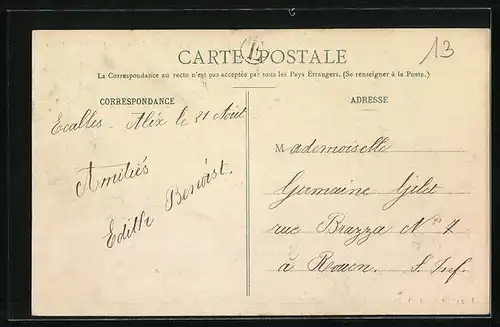 CARTE POSTALE
13
La Correspondance au recto n'est pas acceptée par tous les Pays Étrangers. (Se renseigner à la Poste.)
CORRESPONDANCE
Ecalles-Alix le 21 Août
Amitiés
Edith Benoist.
ADRESSE
Mademoiselle
Germaine Gilet
rue Brazza No 7
à Rouen. S. Inf.